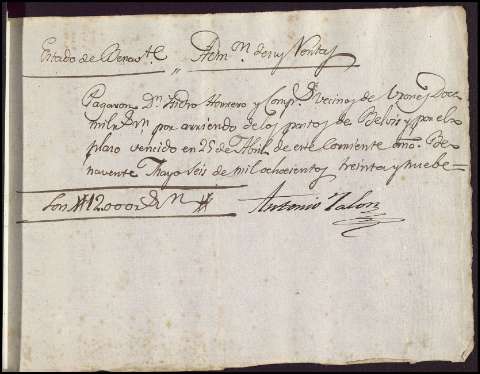 Estado de Benav.te „ Adm.n de sus Rentas
Pagaron Dn. Isidro Herrero y Comp.a Vecinos de Doce
mil r.s Vn por arriendo de los pastos de Belvis y por el
plazo vencido en 25 de Abril de este Corriente año. Be-
navente Mayo seis de mil ochocientos treinta y nuebe=
Son # 12.000 r.s Vn #
Antonio Talon